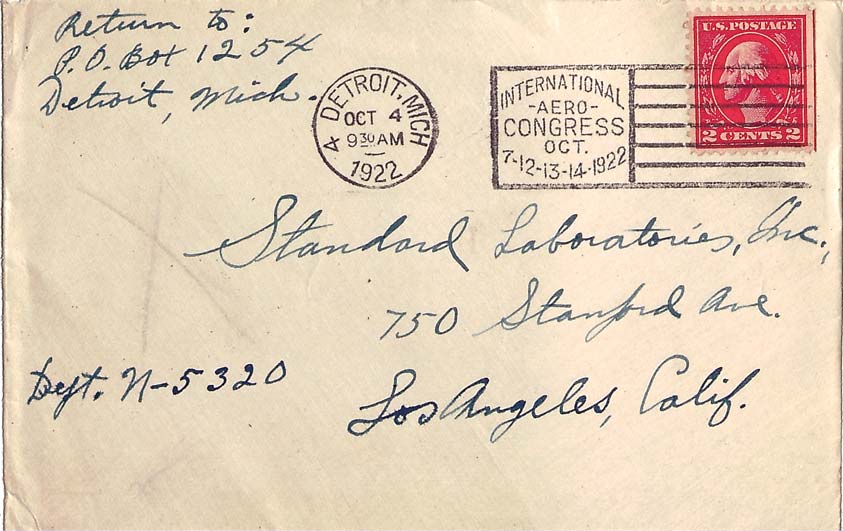 Return to:
P.O. Box 1254
Detroit, Mich.
DETROIT, MICH
OCT 4
930 AM
1922
A
INTERNATIONAL
-AERO-
CONGRESS
OCT.
7-12-13-14-1922
U.S. POSTAGE
2 CENTS 2
Standard Laboratories, Inc.,
750 Stanford Ave.
Los Angeles, Calif.
Dept. N-5320